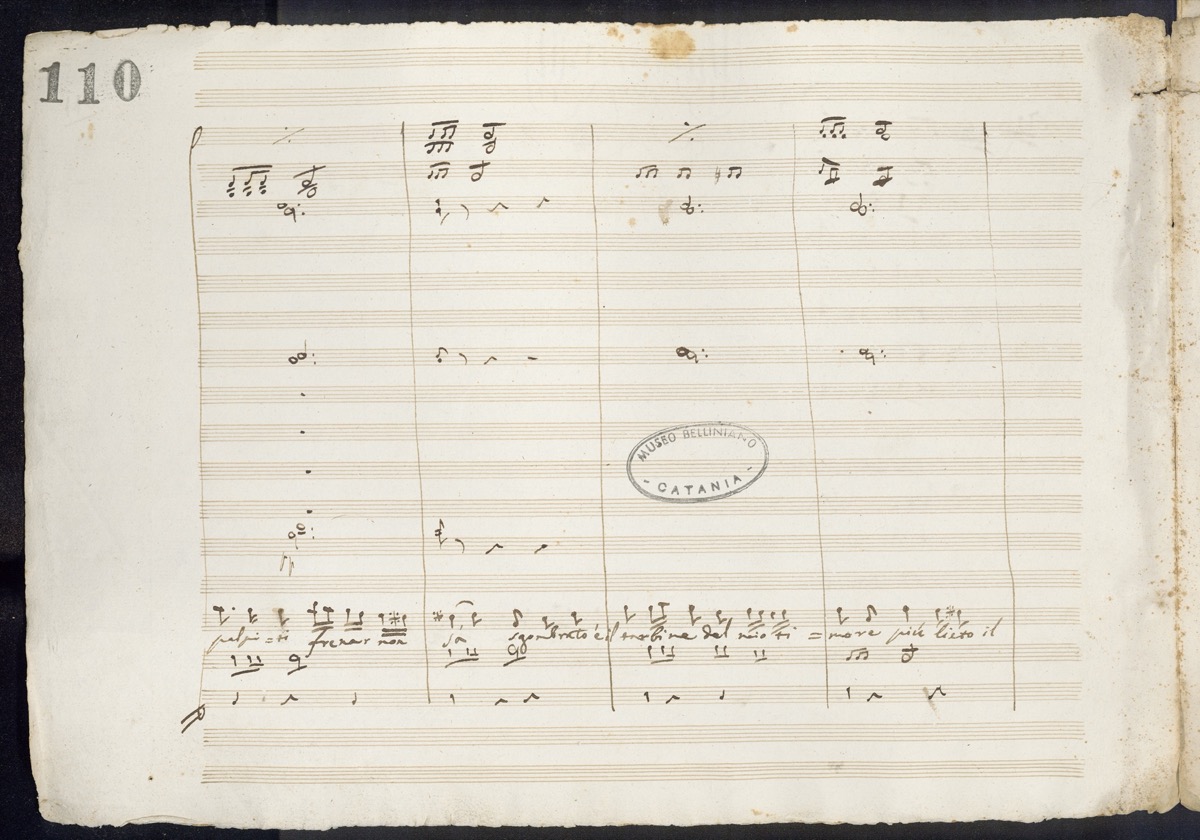 110
MUSEO BELLINIANO
- CATANIA -
palpi = ti frenar non sà sgombrato è il turbine del mio ti = more più lieto il